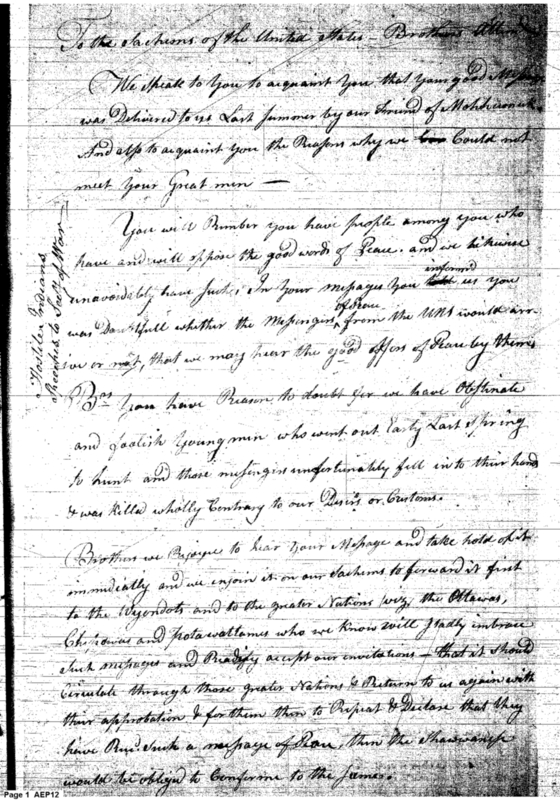 To the Sachems of the United States – Brothers Attend
We Speak to You to acquaint You that Your good Message
was Delivered to us Last summer by our Friend of Mohheconnuk
And also to acquaint You the Reasons why we Could not
meet Your Great men —
You will Rember you have people among you who
have and will oppose the good words of Peace. and we likewise
unavoidably have such. In Your messages You informed us you
was Doubtfull whether the Messengers of Peace from the UNS would arr-
ive or not, that we may hear the good offers of Peace by them
Brs You have Reason to doubt for we have Obstinate
and foolish Young men who went out Early Last Spring
to hunt and those messengers unfortunately fell in to their hands
& was killed wholly Contrary to our Desires or Customs.
Brothers we Rejoyce to hear Your Message and take hold of it
immidially and we enjoin it on our Sachems to forward it first
to the Wyondots and to the greater Nations (viz) the Ottawas,
Chipawas and potawattames who we know will gladly embrace
Such messages and Readily accept our invitations – that it should
Circulate through those greater Nations & Return to us again with
their approbation & for them then to Repeat & Declare that they
have Recd Such a message of Peace, then the Shawwanese
would be obliged to Conforme to the same.
Hostile Indians
Speeches to Secy of War
Page 1 AEP12